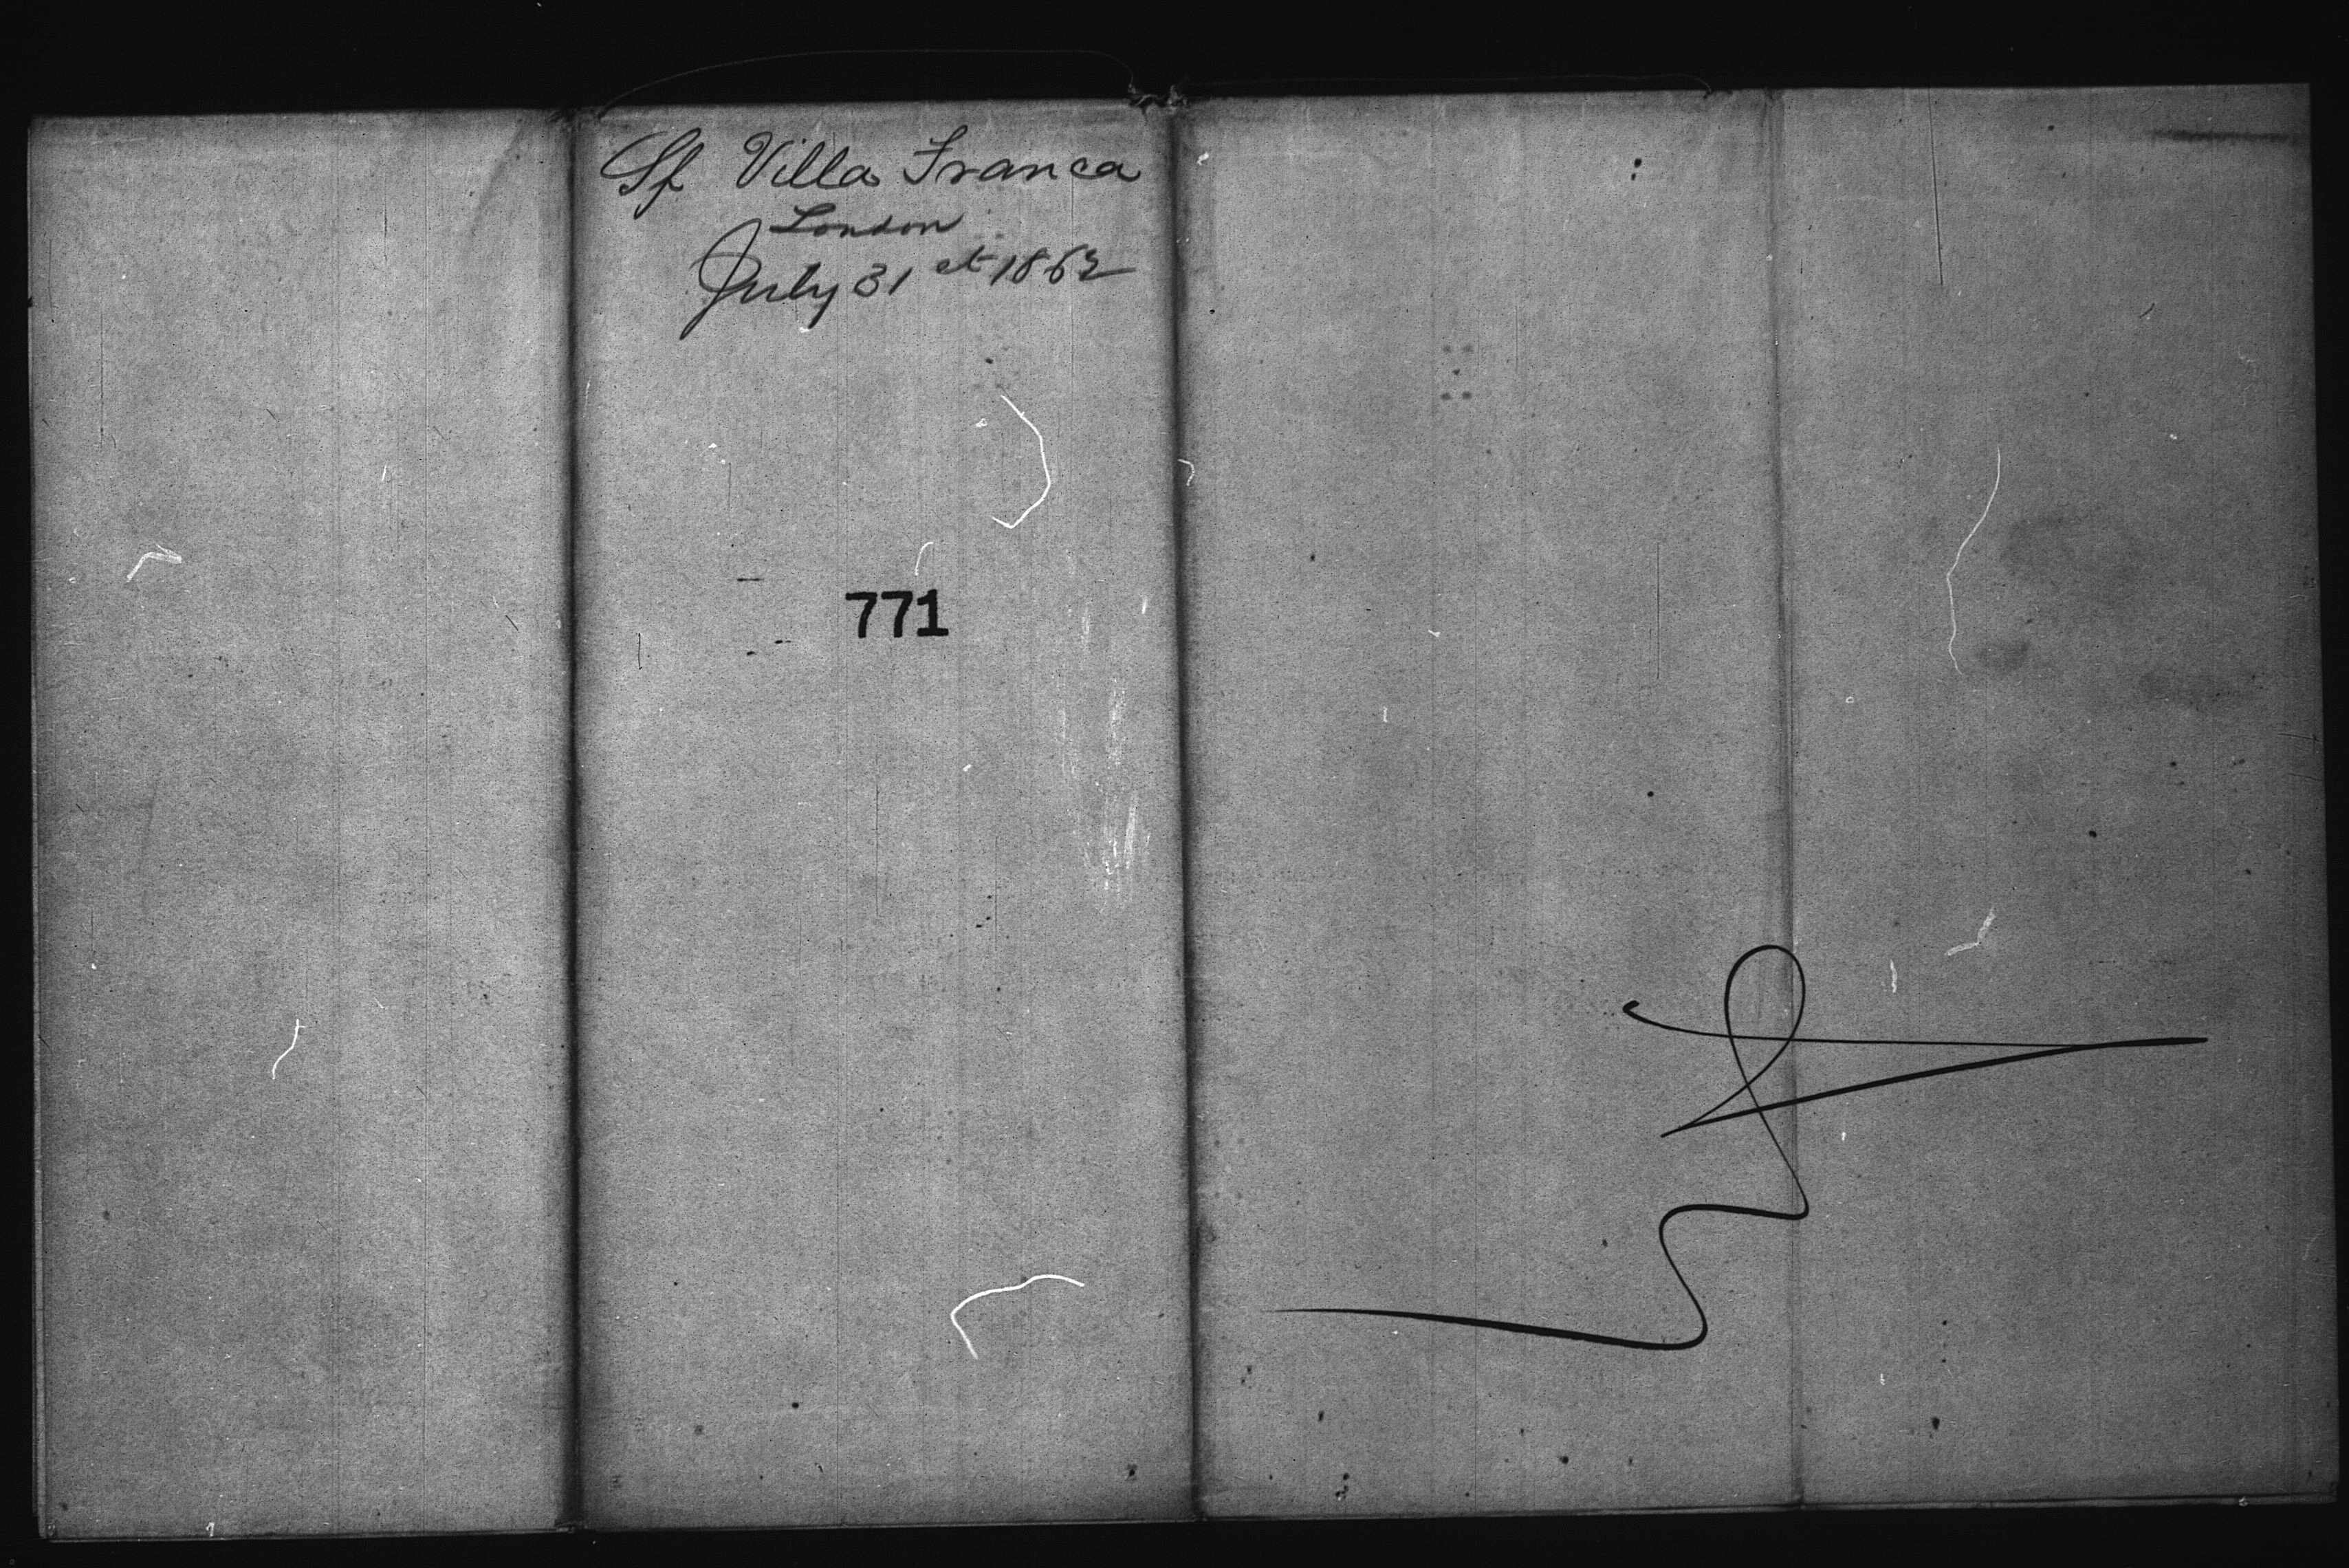 Sp Villa Franca
London
July 31 st 1862
771